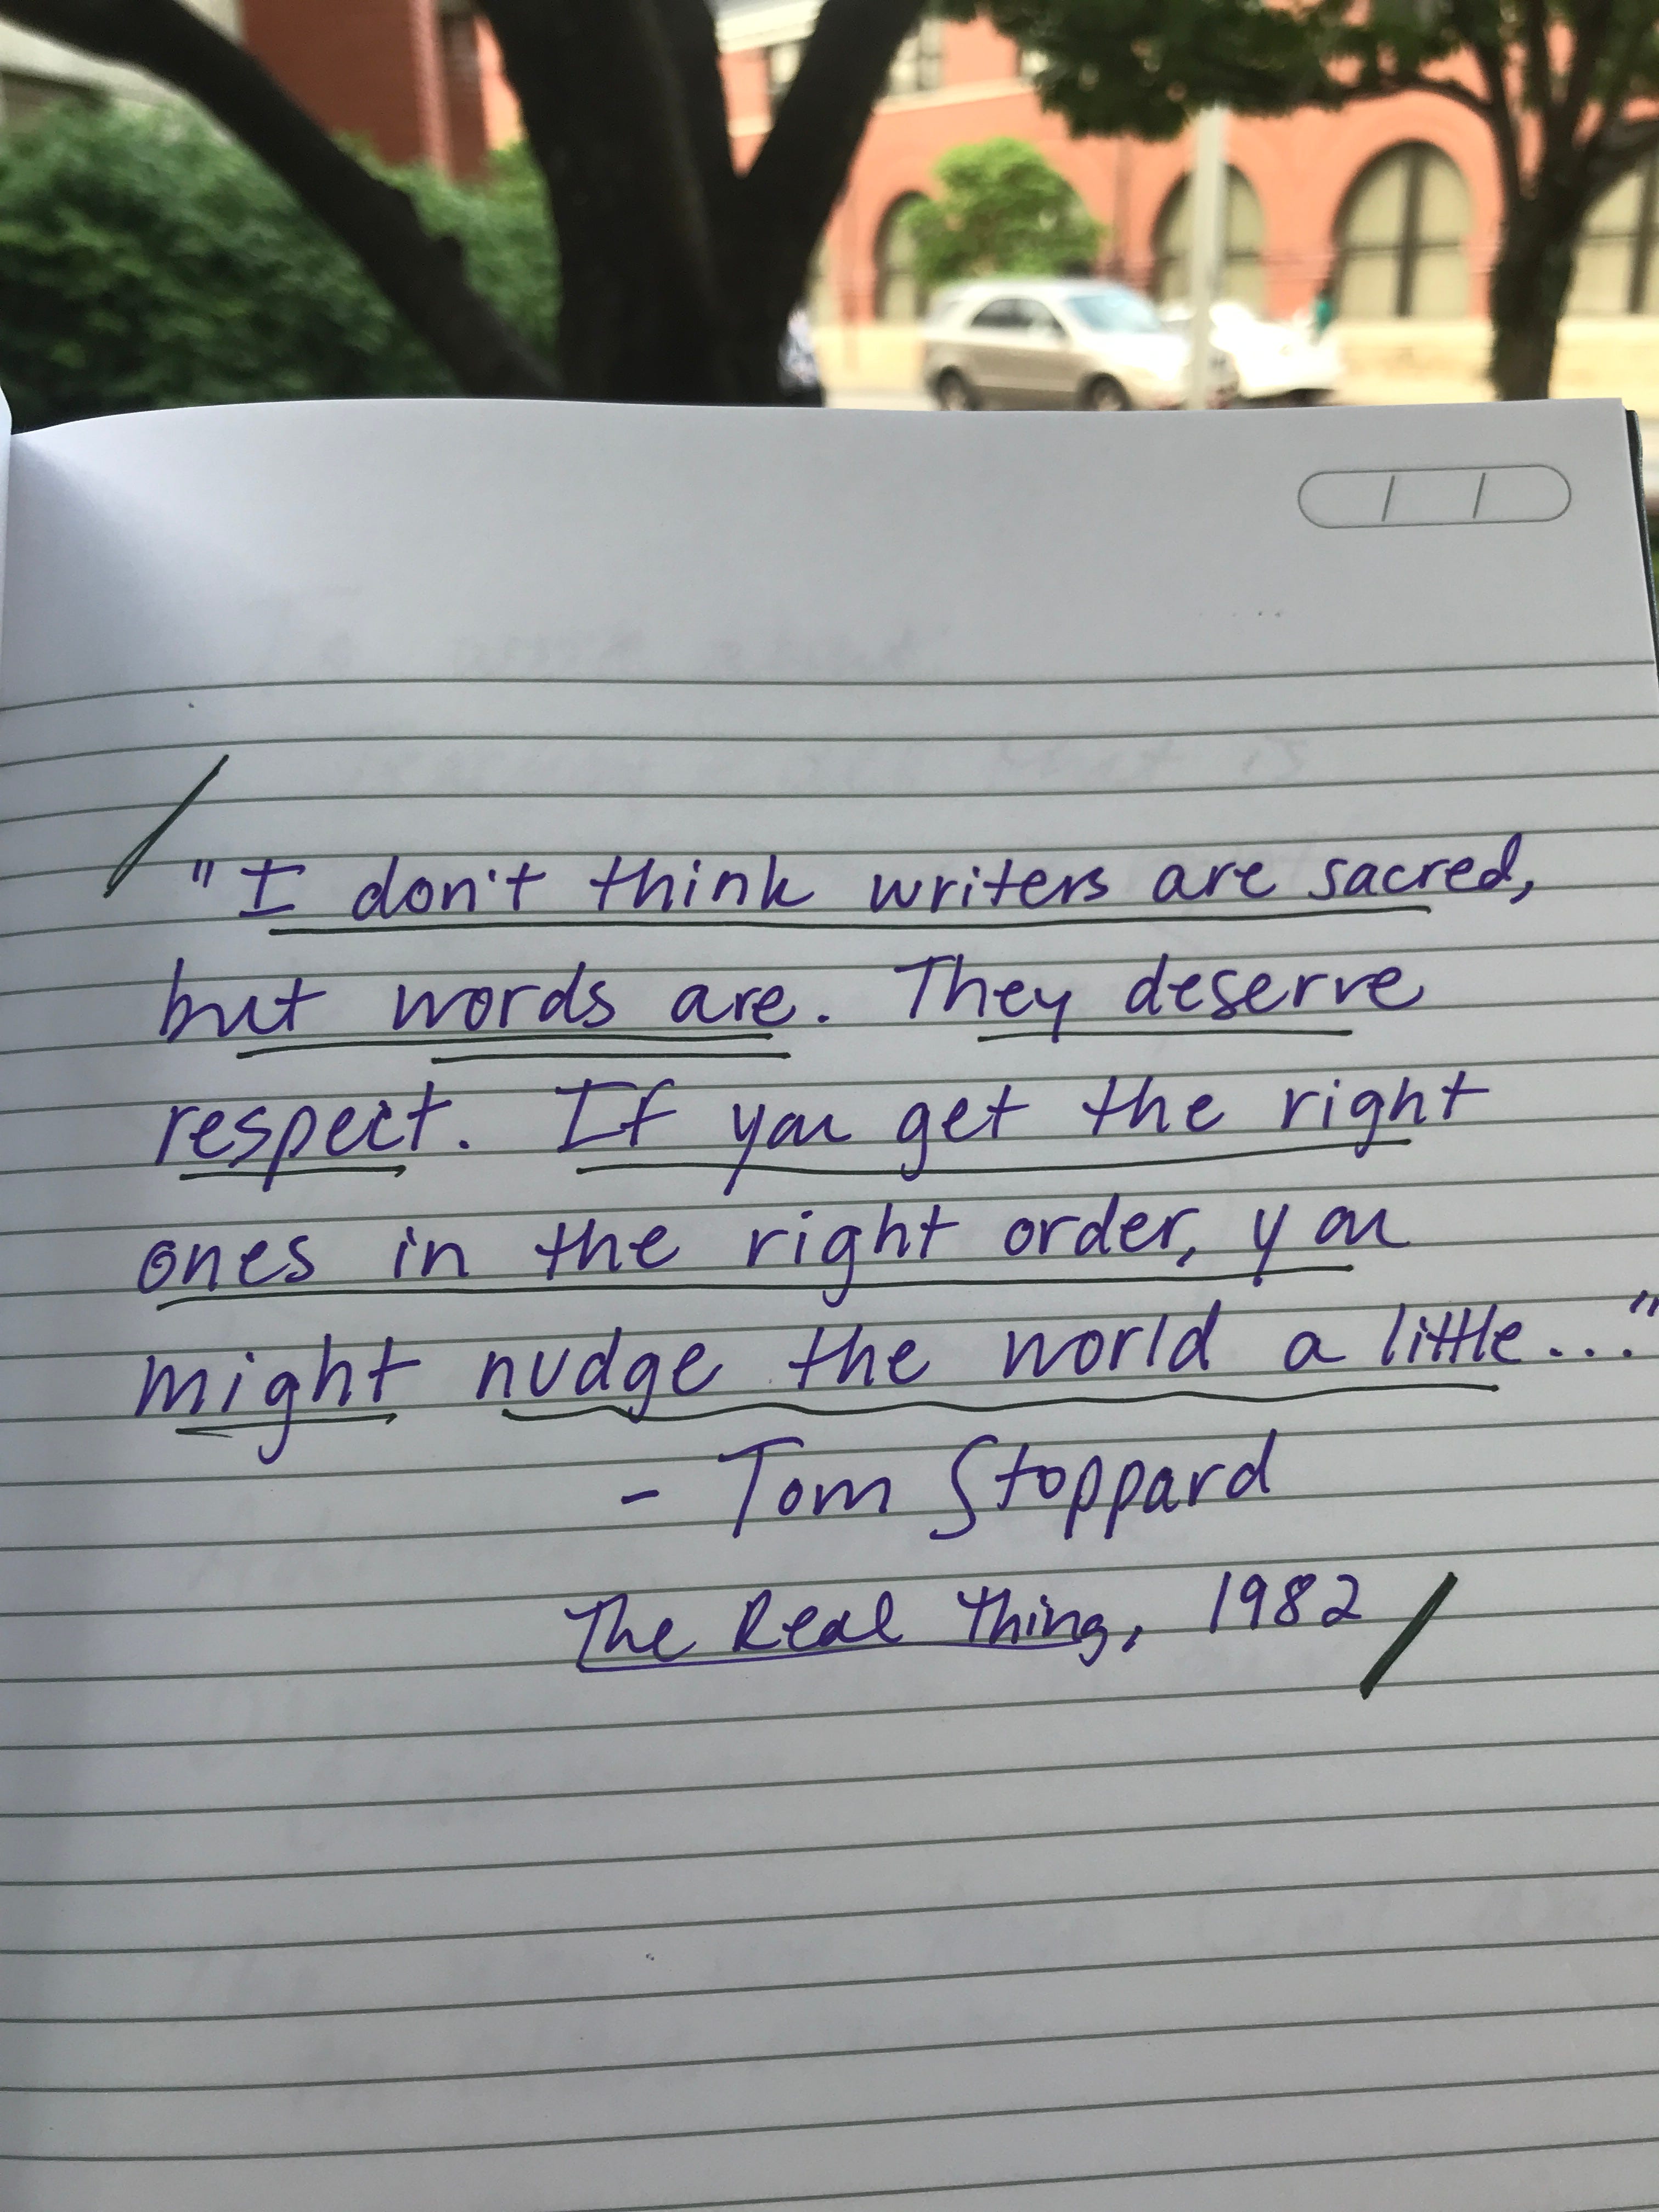 "I don't think writers are sacred,
but words are. They deserve
respect. If you get the right
ones in the right order, you
might nudge the world a little..."
- Tom Stoppard
The Real Thing, 1982